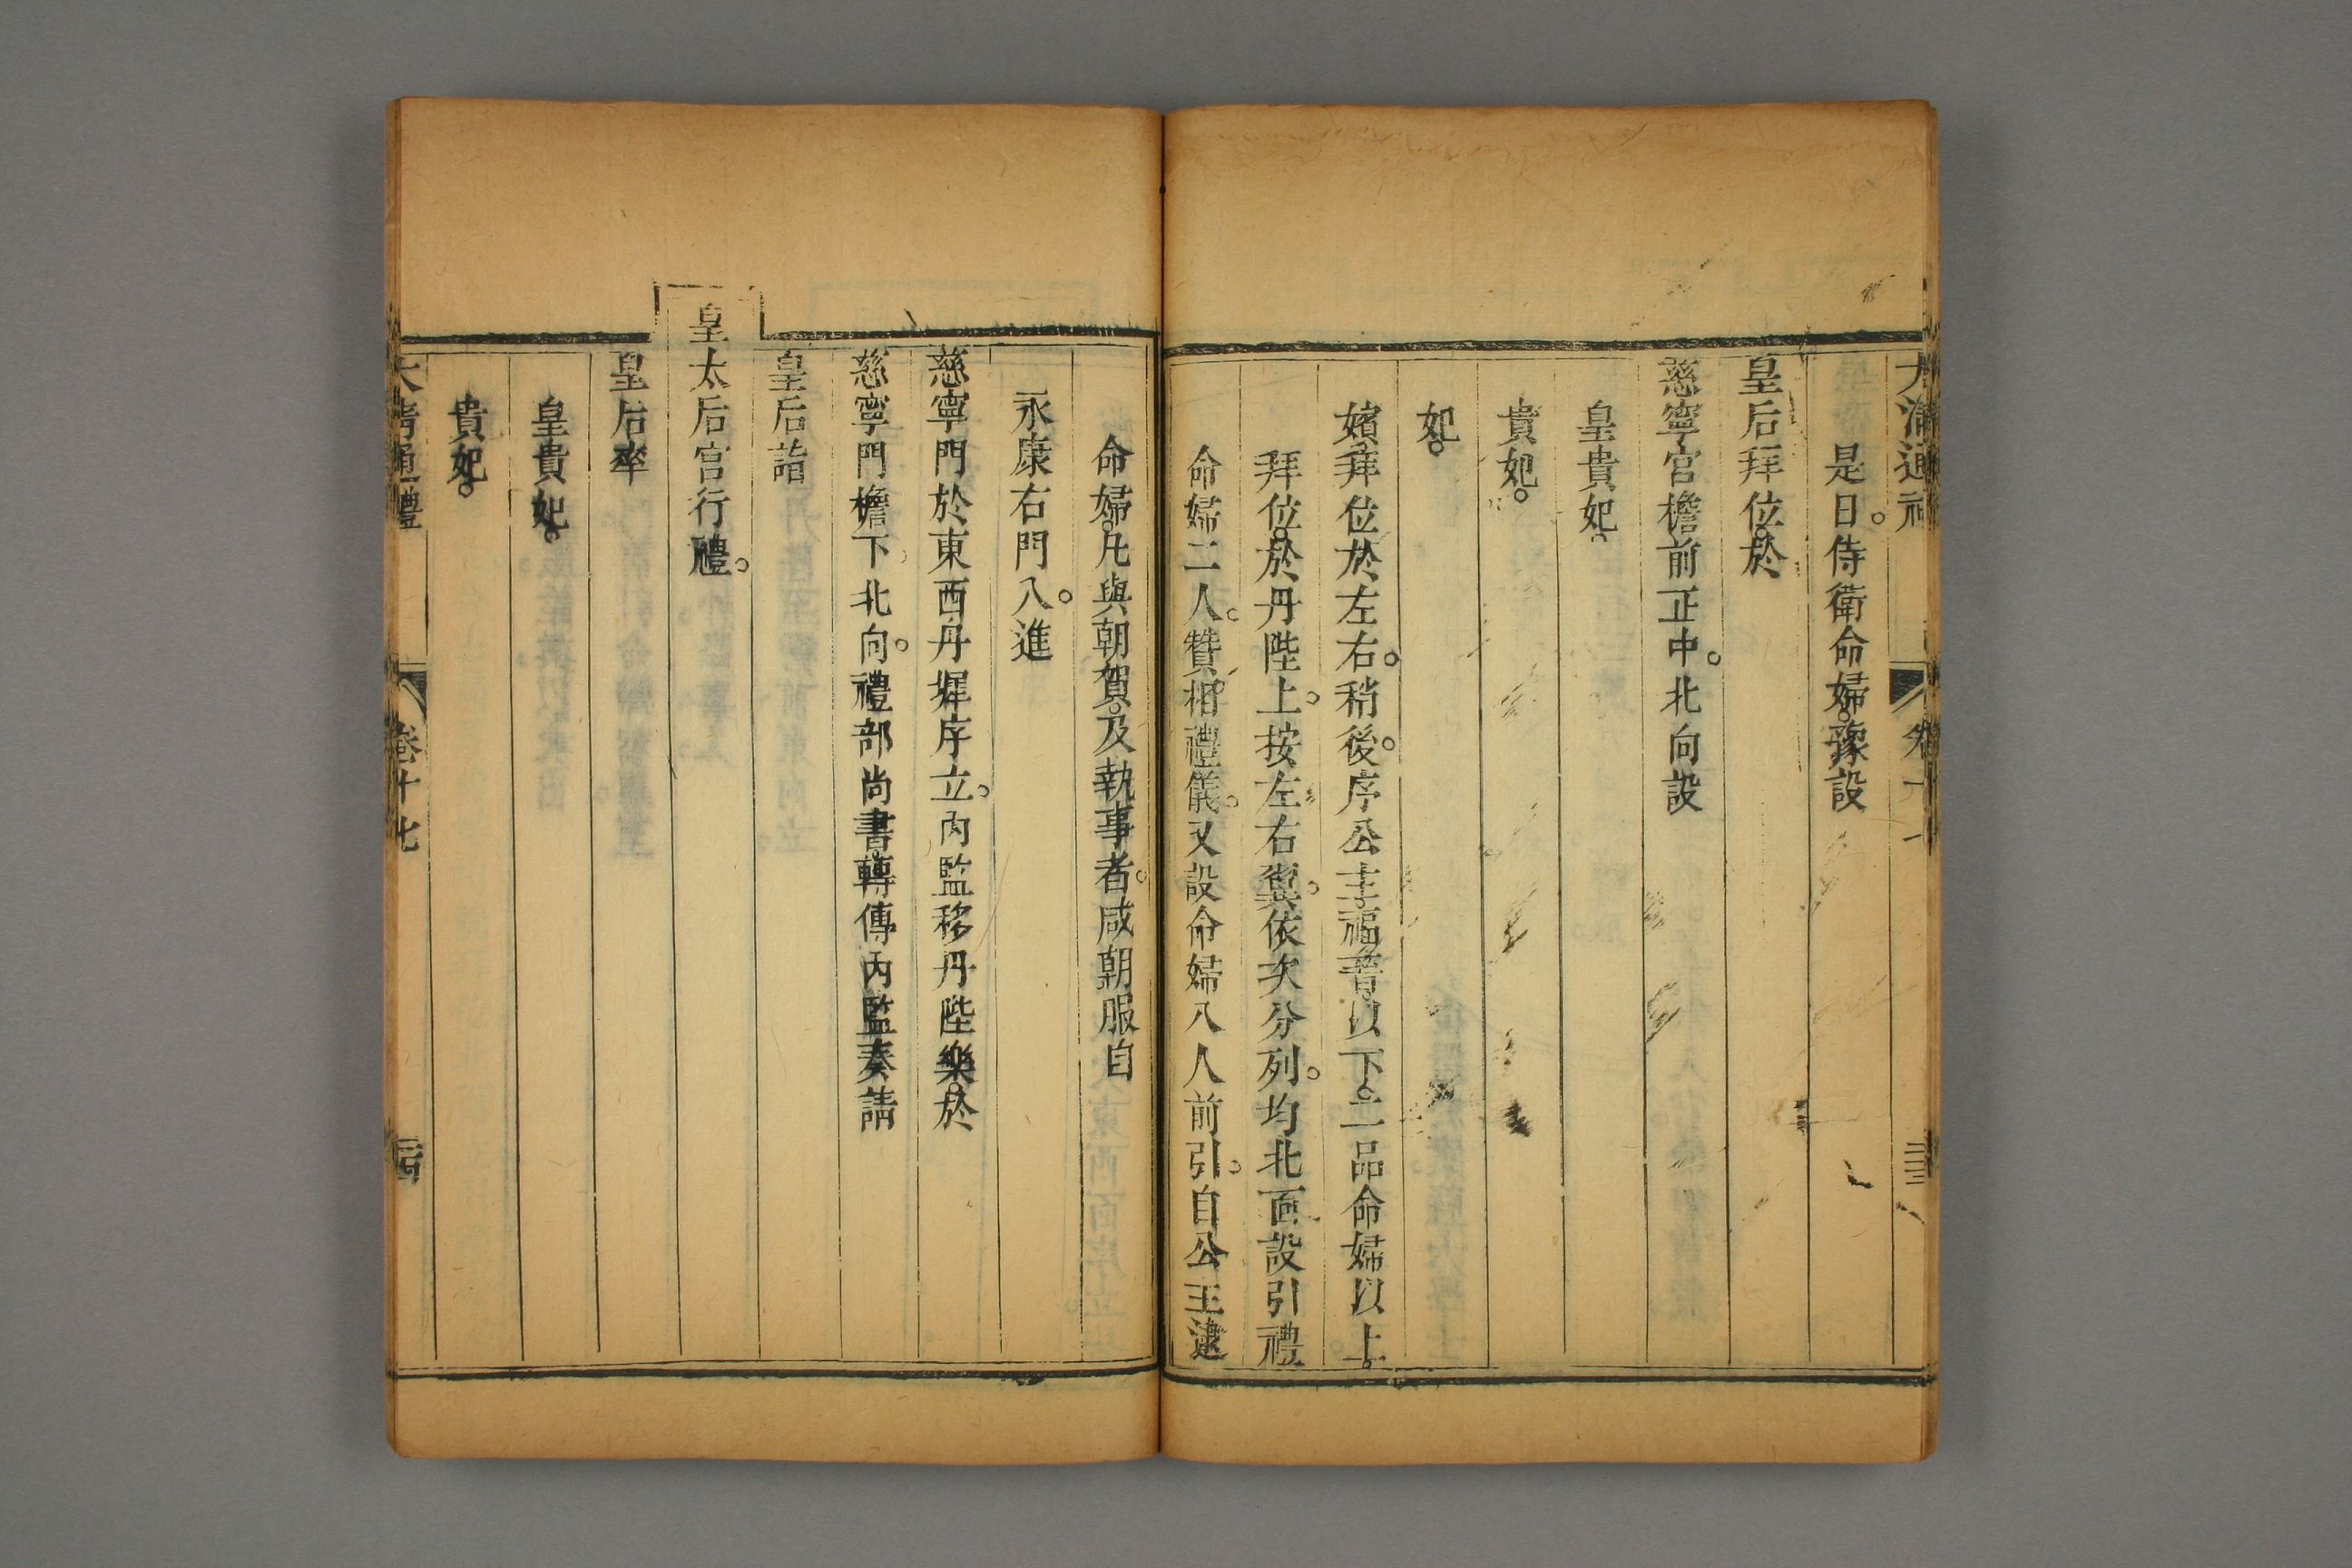 大清通禮 卷十七
是日。侍衛命婦。豫設
皇后拜位。於
慈寧宮檐前正中。北向設
皇貴妃。
貴妃。
妃。
嬪。拜位於左右。稍後。序公主。福晉。以下。二品命婦以上。
拜位。於丹陛上。按左右翼。依次分列。均北面。設引禮
命婦二人。贊。相禮儀。又設命婦八人前引。自公主逮
命婦。凡與朝賀。及執事者。咸朝服自
永康右門入。進
慈寧門。於東西丹墀序立。內監移丹陛樂。於
慈寧門檐下北向。禮部尚書。轉傳內監奏請
皇后詣
皇太后宮行禮。
皇后率
皇貴妃。
貴妃。
大清通禮 卷十七